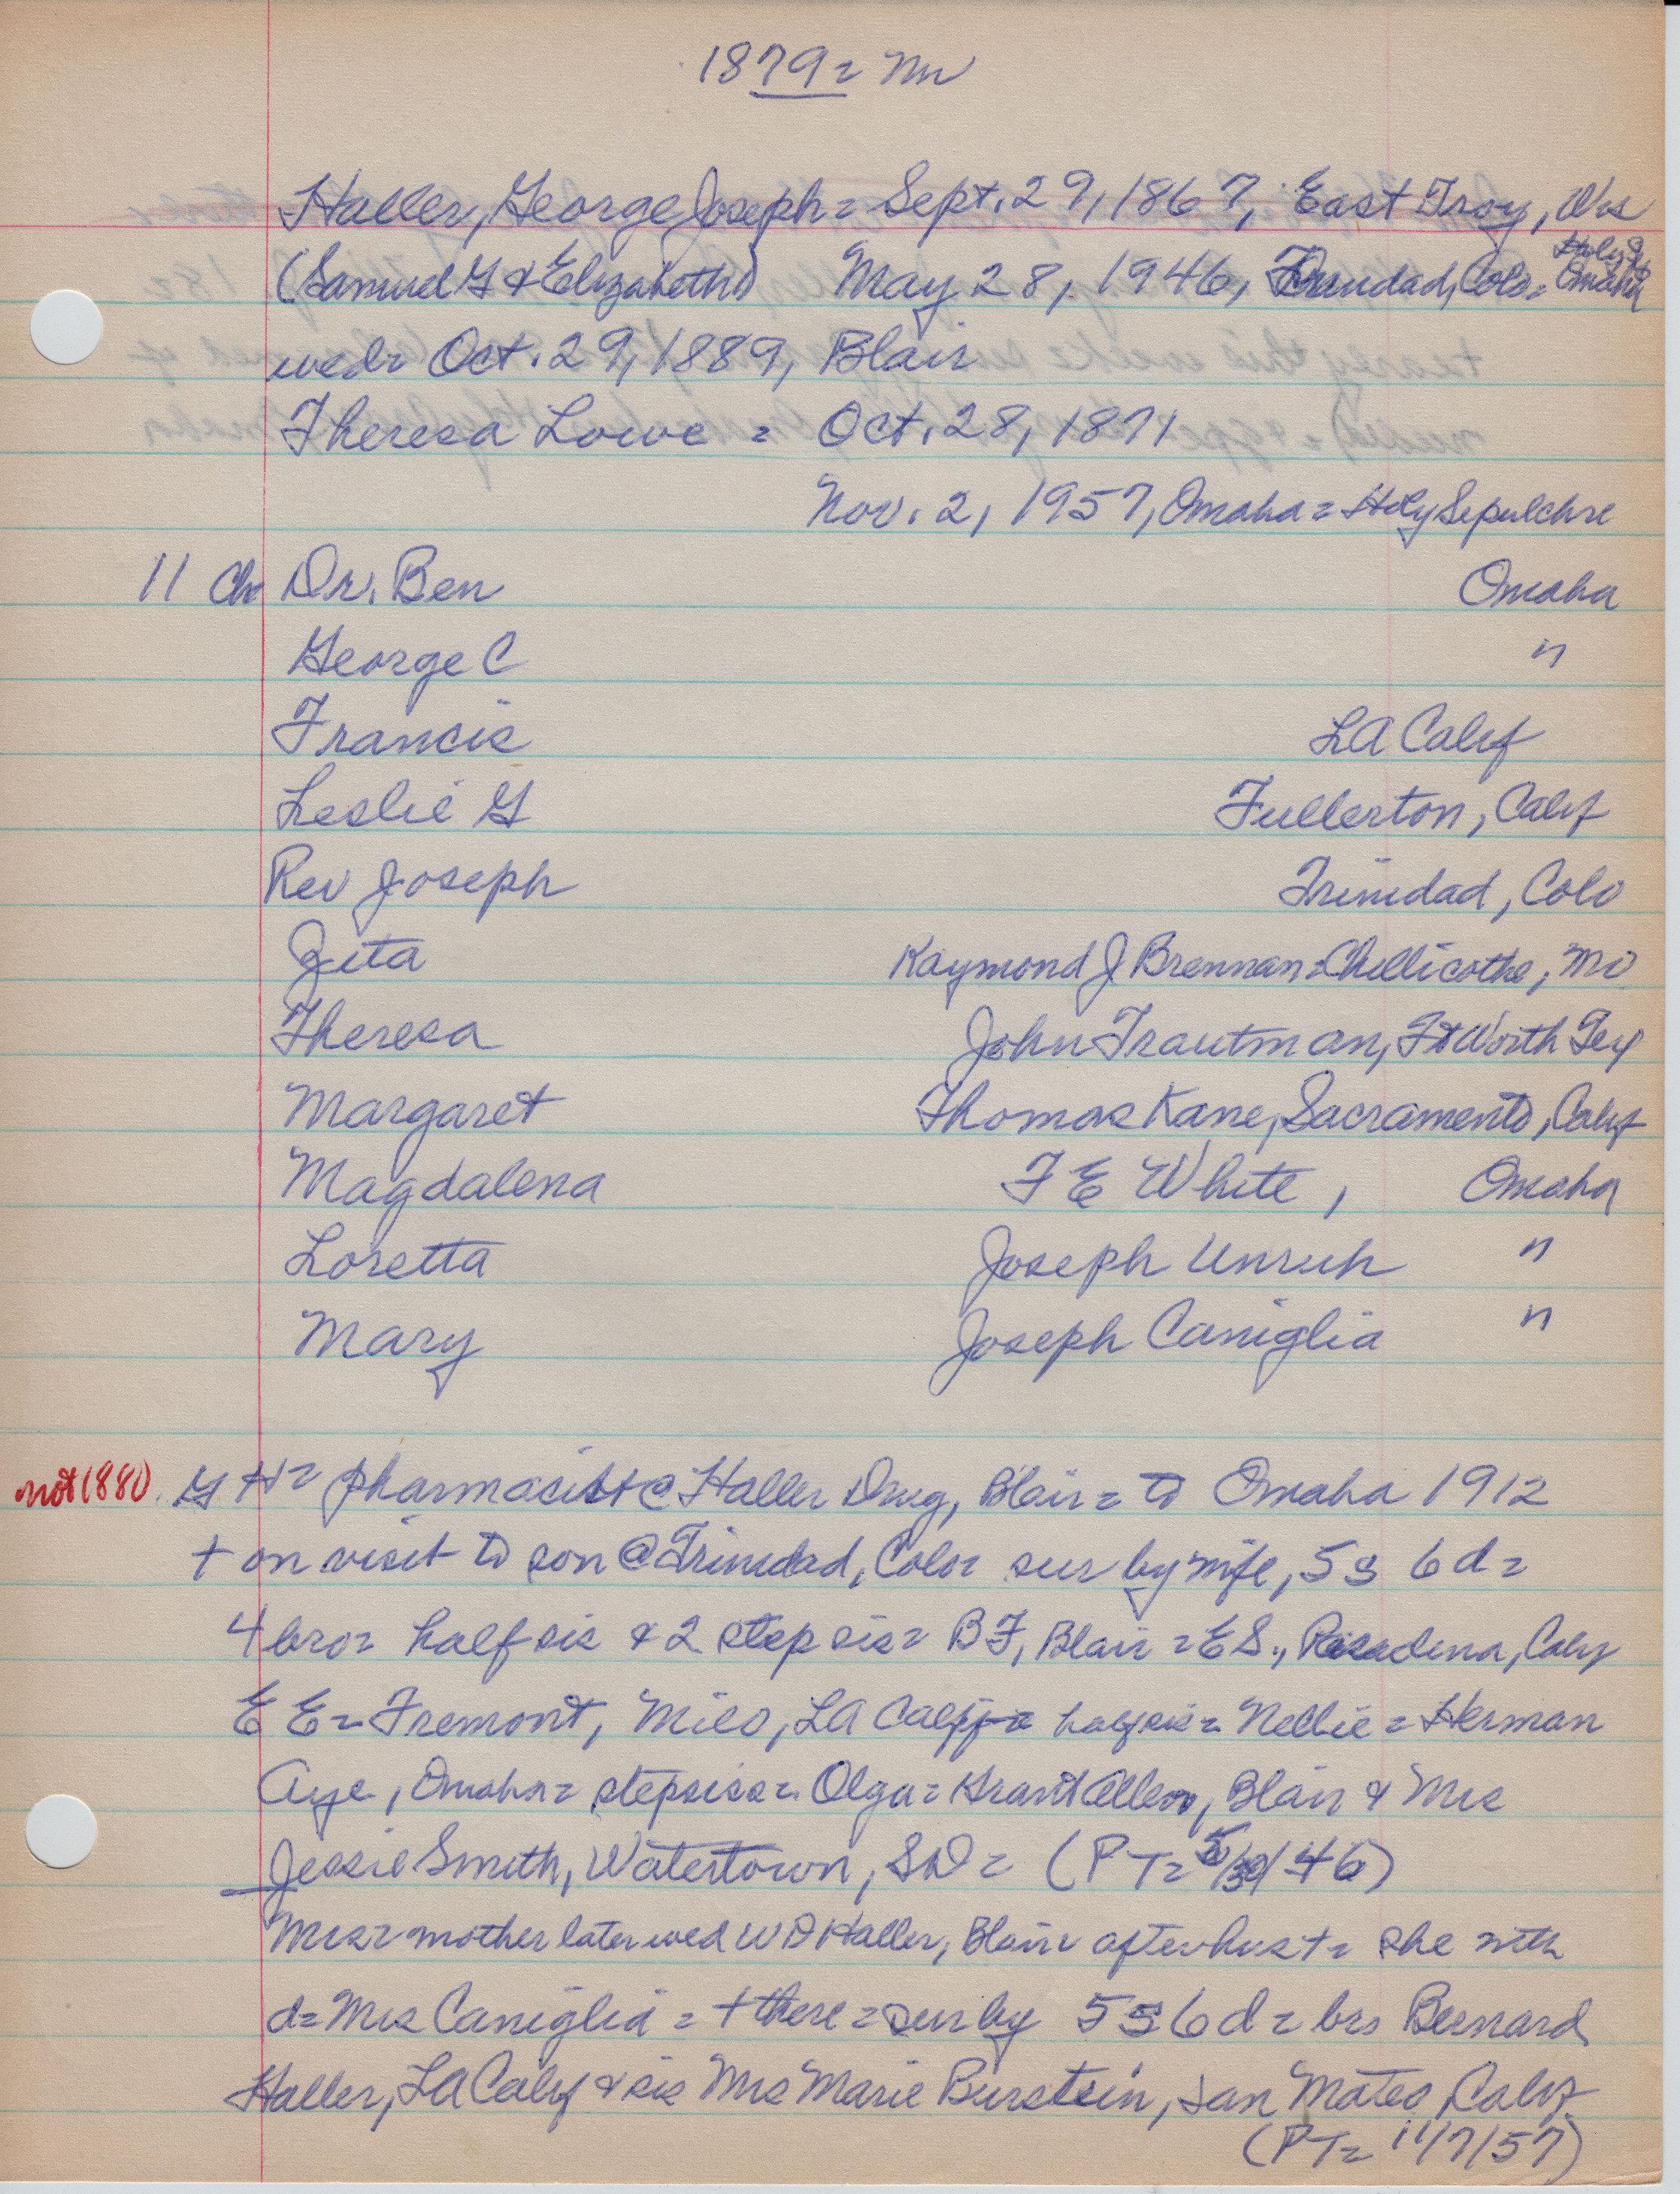 1879 = Nw
Haller, George Joseph = Sept. 29, 1867, East Troy, Wis
(Samuel G & Elizabeth) May 28, 1946, Trinidad, Colo = Holy S Omaha
wed = Oct. 29, 1889, Blair
Theresa Lowe = Oct. 28, 1871
Nov. 2, 1957, Omaha = Holy Sepulchre
11 Ch Dr. Ben Omaha
George C "
Francis LA Calif
Leslie G Fullerton, Calif
Rev Joseph Trinidad, Colo
Zita Raymond J Brennan = Chillicothe, Mo
Theresa John Trautman, Ft Worth Tex
Margaret Thomas Kane, Sacramento, Calif
Magdalena F E White, Omaha
Loretta Joseph Unruh "
Mary Joseph Caniglia "
not 1880 G H = pharmacist @ Haller Drug, Blair = to Omaha 1912
† on visit to son @ Trinidad, Colo = sur by wife, 5 s 6 d =
4 bro = half sis & 2 step sis = B F, Blair = E S., Pasadena, Calif
E E = Fremont, Milo, LA Calif = half sis = Nellie = Herman
Aye, Omaha = stepsiss = Olga = Grant Allen, Blair & Mrs
Jessie Smith, Watertown, SD = (P T = 5/30/46)
Mrs = mother later wed W D Haller, Blair = after hus † = she with
d = Mrs Caniglia = † there = sur by 5 s 6 d = bro Bernard
Haller, LA Calif & sis Mrs Marie Burstein, San Mateo, Calif
(PT = 11/7/57)